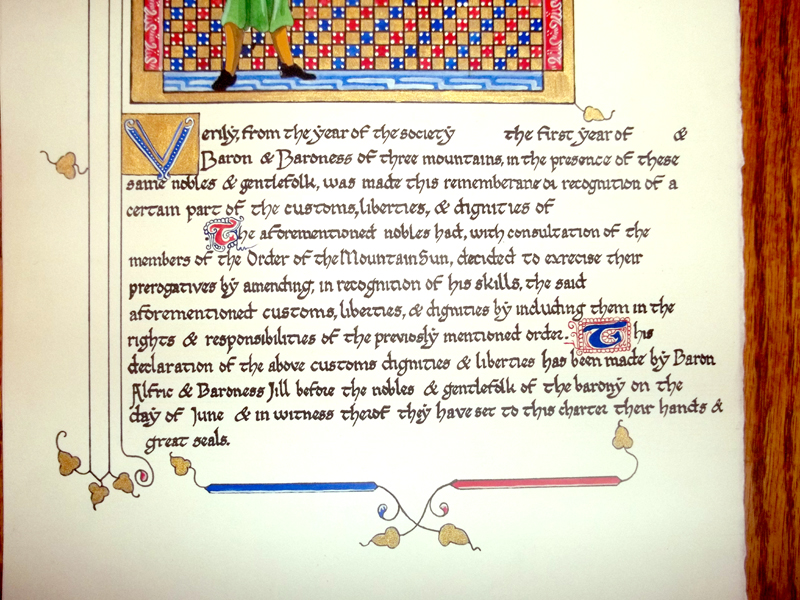 Verily, from the year of the society the first year of &
Baron & Baroness of three mountains, in the presence of these
same nobles & gentlefolk, was made this rememberane or recognition of a
certain part of the customs, liberties, & dignities of
The aforementioned nobles had, with consultation of the
members of the Order of the Mountain Sun, decided to exercise their
prerogatives by amending, in recognition of his skills, the said
aforementioned customs, liberties, & dignities by including them in the
rights & responsibilities of the previosly mentioned order. This
declaration of the above customs dignities & liberties has been made by Baron
Alfric & Baroness Jill before the nobles & gentlefolk of the barony on the
day of June & in witness therof they have set to this charter their hands &
great seals.